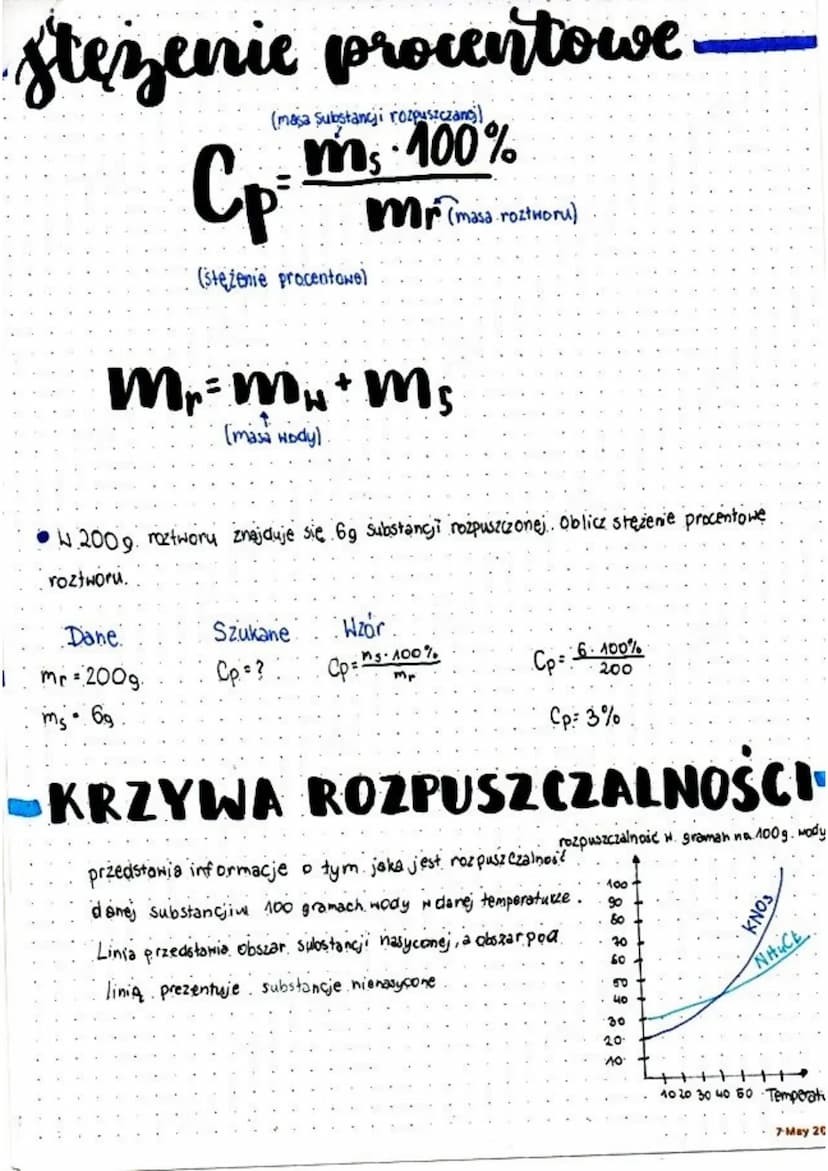 stężenie procentowe
(masa substancji rozpuszczanej)
Cp = ms · 100%
mr (masa roztworu)
(stężenie procentowe)
mr = mw + ms
(masa wody)
• W 200g. roztworu znajduje się 6g substancji rozpuszczonej. Oblicz stężenie procentowe
roztworu.
Dane Szukane Wzór
mr = 200g Cp = ? Cp = ms · 100% / mr Cp = 6 · 100% / 200
ms = 6g Cp = 3%
KRZYWA ROZPUSZCZALNOŚCI
rozpuszczalność w gramah na 100g. wody
przedstawia informacje o tym jaka jest rozpuszczalność
danej substancjiw 100 gramach wody w danej temperaturze.
Linia przedstawia obszar substancji nasyconej, a obszar pod
linią prezentuje substancje nienasycone
100
90
80
70
60
50
40
30
20
10
KNO3
NH4Cl
10 20 30 40 50 Temperatu
7 May 20